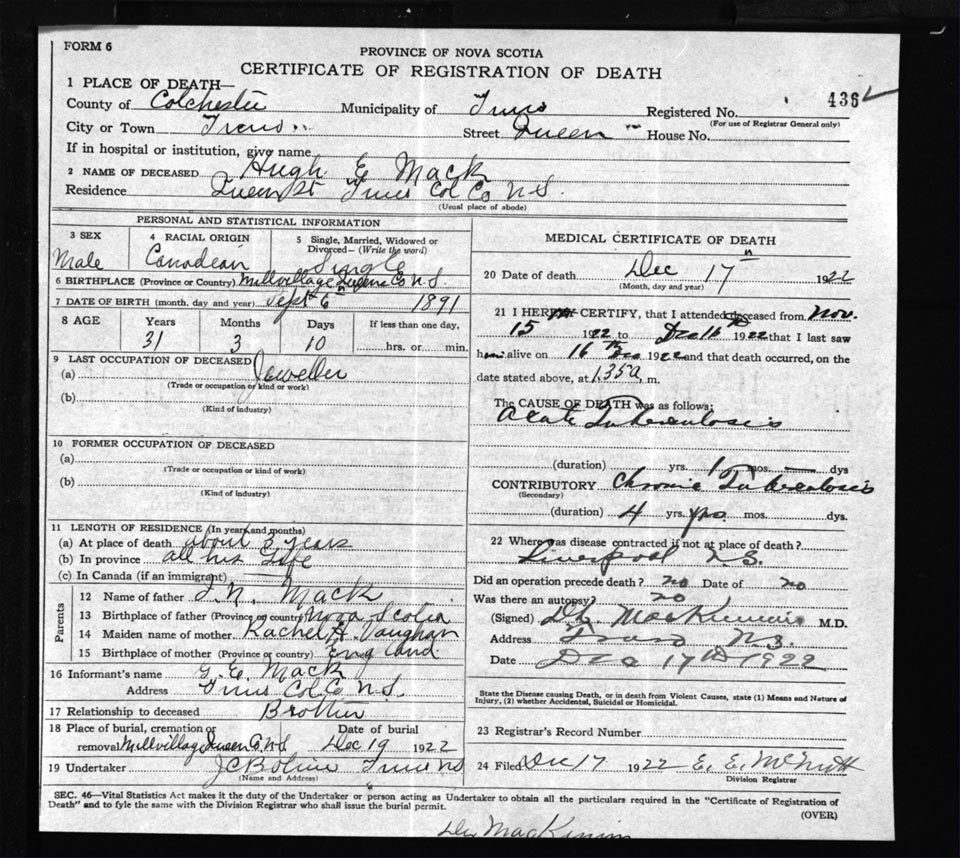 FORM 6
PROVINCE OF NOVA SCOTIA
CERTIFICATE OF REGISTRATION OF DEATH
436
1 PLACE OF DEATH—
County of Colchester Municipality of Truro Registered No.
(For use of Registrar General only)
City or Town Truro Street Queen House No.
If in hospital or institution, give name
2 NAME OF DECEASED Hugh E Mack
Residence Queen St Truro Col Co N.S.
(Usual place of abode)
PERSONAL AND STATISTICAL INFORMATION
3 SEX Male
4 RACIAL ORIGIN Canadean
5 Single, Married, Widowed or Divorced—(Write the word) Single
6 BIRTHPLACE (Province or Country) Millvillage Queens Co N.S.
7 DATE OF BIRTH (month, day and year) Sept 6th 1891
8 AGE Years Months Days If less than one day,
31 3 10 hrs. or min.
9 LAST OCCUPATION OF DECEASED
(a) Jeweller
(Trade or occupation or kind or work)
(b)
(Kind of industry)
10 FORMER OCCUPATION OF DECEASED
(a)
(Trade or occupation or kind of work)
(b)
(Kind of industry)
11 LENGTH OF RESIDENCE (In years and months)
(a) At place of death about 3 years
(b) In province all his life
(c) In Canada (if an immigrant)
Parents
12 Name of father J. N. Mack
13 Birthplace of father (Province or country) Nova Scotia
14 Maiden name of mother Rachel Vaughan
15 Birthplace of mother (Province or country) England
16 Informant's name G. E. Mack
Address Truro Col. Co. N.S.
17 Relationship to deceased Brother
18 Place of burial, cremation or Date of burial
removal Millvillage Queen Co. N.S Dec 19 1922
19 Undertaker Truro NS
(Name and Address)
MEDICAL CERTIFICATE OF DEATH
20 Date of death Dec 17th 1922
(Month, day and year)
21 I HEREBY CERTIFY, that I attended deceased from Nov.
15 1922 to Dec 16th 1922 that I last saw
him alive on 16th Dec 1922 and that death occurred, on the
date stated above, at 1.35 a, m.
The CAUSE OF DEATH was as follows:
Acute Tuberculosis
(duration) yrs. 1 mos. dys
CONTRIBUTORY Chronic Tuberculosis
(Secondary)
(duration) 4 yrs. mos. dys.
22 Where was disease contracted if not at place of death?
Liverpool N.S.
Did an operation precede death? no Date of no
Was there an autopsy? no
(Signed) MacKinnon M.D.
Address Truro N.S.
Date Dec 17th 1922
State the Disease causing Death, or in death from Violent Causes, state (1) Means and Nature of
Injury, (2) whether Accidental, Suicidal or Homicidal.
23 Registrar's Record Number
24 Filed Dec 17 1922 E. E. McNutt
Division Registrar
SEC. 46—Vital Statistics Act makes it the duty of the Undertaker or person acting as Undertaker to obtain all the particulars required in the "Certificate of Registration of
Death" and to fyle the same with the Division Registrar who shall issue the burial permit.
(OVER)
MacKinnon